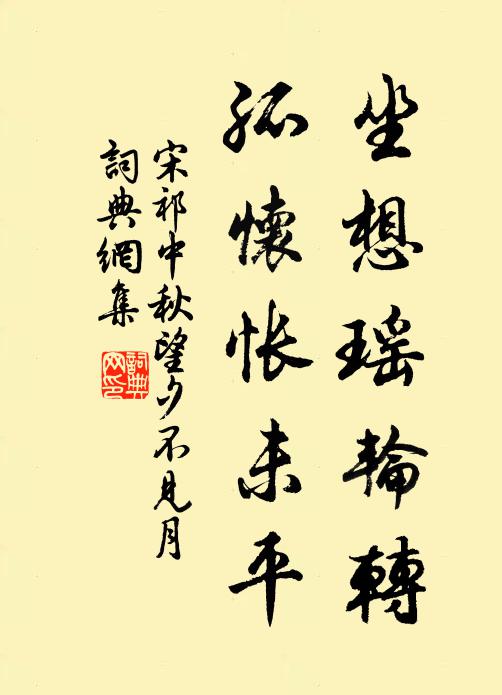 坐想瑶輪轉
孤懷悵未平
宋祁中秋望夕不見月
詞典網集
詞典网印